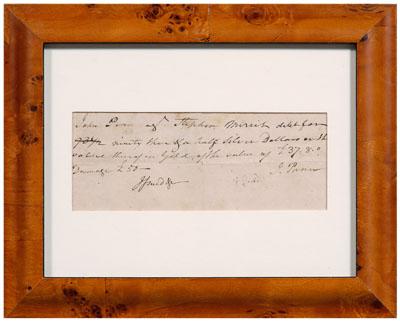 John Penn agt Stephen Merritt debt for
ninety three & a half Silver Dollars or the
value thereof in Gold, of the value of £37.8.0
Damage £50
J. Penn